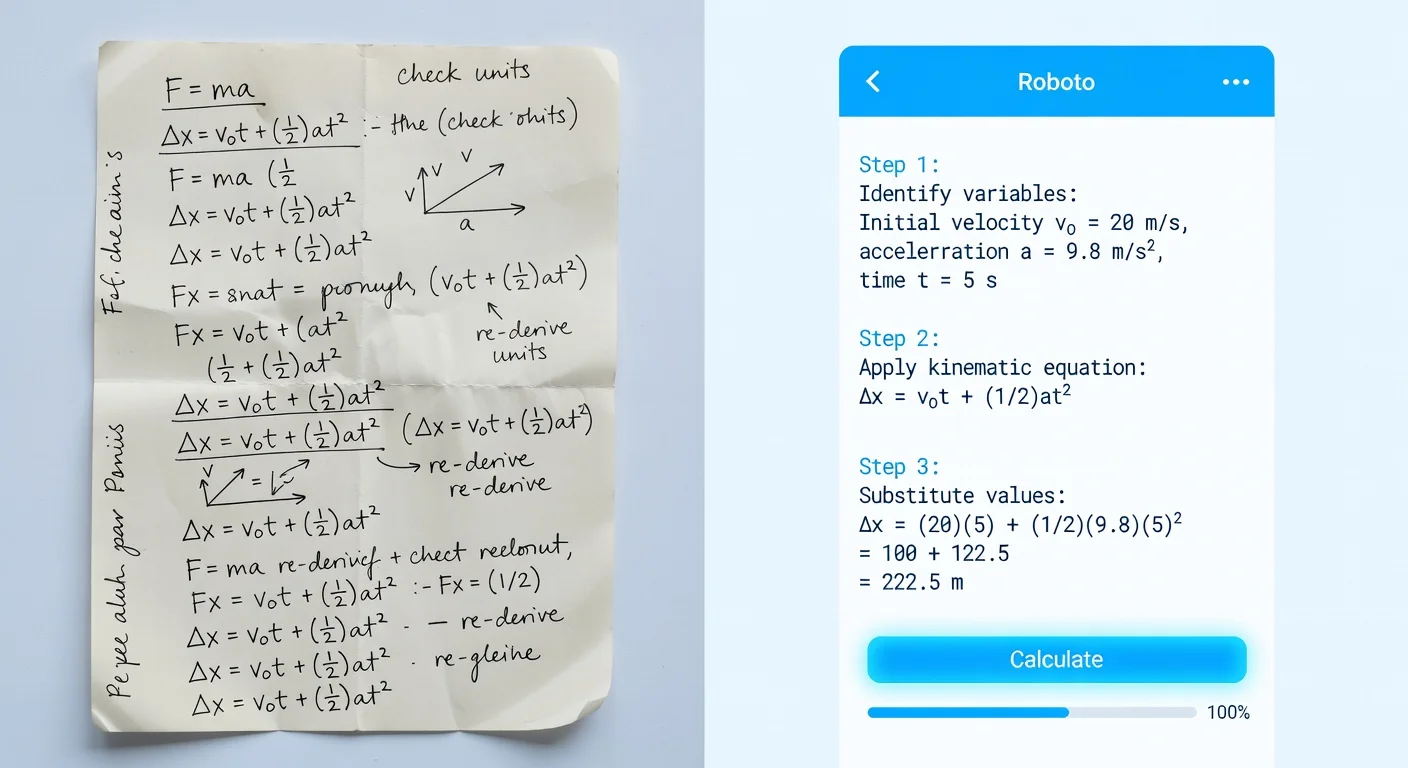 F = ma
check units
Δx = v₀t + (½)at² :- the (check units)
F = ma (½
Δx = v₀t + (½)at²
Δx = v₀t + (½)at²
V
V
V
a
Fx = snat = (v₀t + (½)at²)
Fx = v₀t + (at²
(½ + (½)at²
re-derive
units
Δx = v₀t + (½)at²
Δx = v₀t + (½)at² (Δx = v₀t + (½)at²)
re-derive
re-derive
V
=
Δx = v₀t + (½)at²
F = ma + chect
Fx = v₀t + (½)at² :- Fx = (1/2)
Δx = v₀t + (½)at² . — re-derive
Δx = v₀t + (½)at² . re-gleihe
Δx = v₀t + (½)at²
Roboto
Step 1:
Identify variables:
Initial velocity v₀ = 20 m/s,
accelerration a = 9.8 m/s²,
time t = 5 s
Step 2:
Apply kinematic equation:
Δx = v₀t + (1/2)at²
Step 3:
Substitute values:
Δx = (20)(5) + (1/2)(9.8)(5)²
= 100 + 122.5
= 222.5 m
Calculate
100%